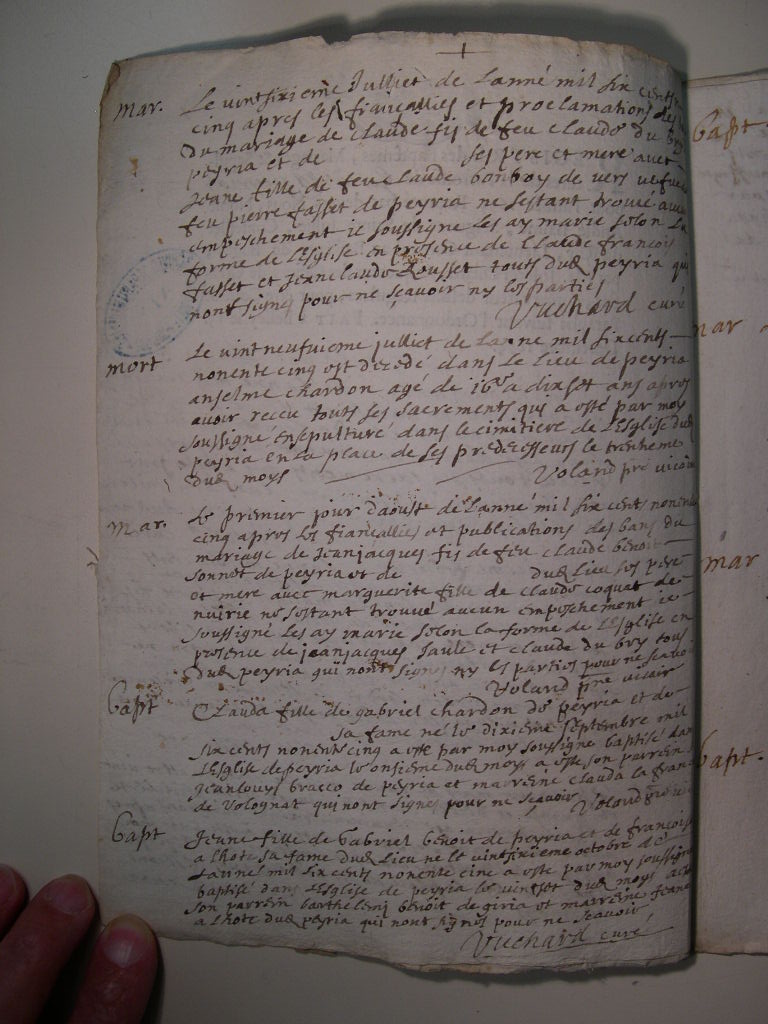 mar. Le vintsixieme Julliet de Lanné mil six cents
cinq apres les françallies et proclamations des
Du mariage de Claude fis de feu Claude du bry
peyria et de ses pere et mere avec
Jeane fille de feu Claude bonboy de vers vefue
feu pierre fasset de peyria ne sestant trouvé aucun
empeschement ie soussigne Les ay marie selon La
forme de LEsglise en presence de Claude françois
fasset et Jeanclaude Rousset touts dud peyria qui
nont signe pour ne sçavoir ny les parties
Vuchard curé
mort Le vintneufuieme julliet de Lanne mil sixcents
nonente cinq est decedé dans Le Lieu de peyria
anselme chardon agé de 16 a dixset ans apres
avoir receu touts ses sacrements qui a esté par moy
soussigné ensepulturé dans le cimitiere de LEsglise dud
peyria en la place de ses predecesseurs le trentieme
dud moys Voland pre vicaire
mar. Le premier jour daouste de Lanné mil six cents nonente
cinq apres les fiançallies et publications des bans du
mariage de Jeanjacques fis de feu Claude benoit
sonnet de peyria et de dud Lieu ses pere
et mere avec marguerite fille de claude coquat de
nuirie ne sestant trouué aucun empeschement ie
soussigné Les ay marie selon la forme de LEsglise en
presence de jeanjacques Saule et claude du bry tous
dud peyria qui nont signe ny les parties pour ne scavoir
Voland pre vicair
bapt Clauda fille de gabriel chardon de peyria et de
sa fame ne le dixieme septembre mil
six cents nonente cinq a este par moy soussigne baptisé dans
LEsglise de peyria le onsieme dud moys a este son parrein
jeanlouys bracco de peyria et marreine Clauda la franc
de Volognat qui nont signe pour ne sçavoir Voland pre
bapt Jeane fille de Gabriel benoit de peyria et de françoise
a lhote sa fame dud Lieu ne le vintsixieme octobre de
Lanné mil six cents nonente cinc a este par moy soussigné
baptisé dans LEsglise de peyria le vintset dud moys
son parrein barthelemi benoit de giria et marreine Jeane
a lhote dud peyria qui nont signes pour ne sçavoir
Vuchard curé
bapt.
mar
mar
bapt.